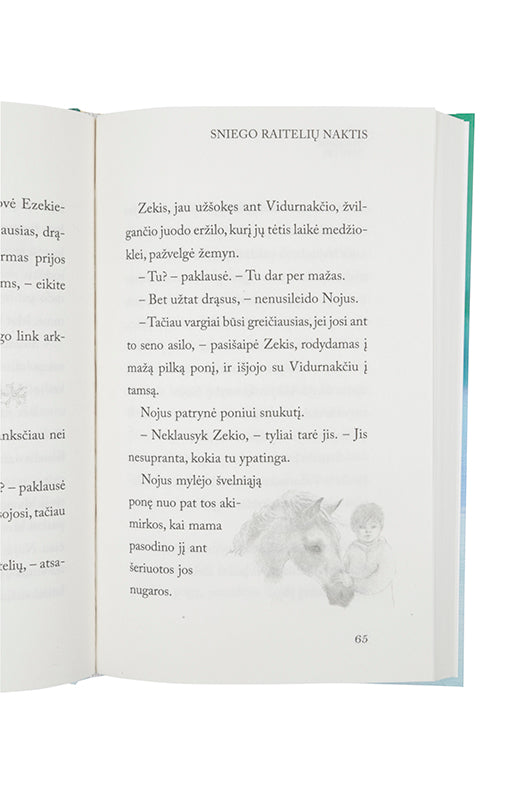 ovė Ezekie-
ausias, drą-
rmas prijos
ms, – eikite
go link ark-
anksčiau nei
? – paklausė
sojosi, tačiau
telių, – atsa-
SNIEGO RAITELIŲ NAKTIS
Zekis, jau užšokęs ant Vidurnakčio, žvil-
gančio juodo eržilo, kurį jų tėtis laikė medžio-
klei, pažvelgė žemyn.
– Tu? – paklausė. – Tu dar per mažas.
– Bet užtat drąsus, – nenusileido Nojus.
– Tačiau vargiai būsi greičiausias, jei josi ant
to seno asilo, – pasišaipė Zekis, rodydamas į
mažą pilką ponį, ir išjojo su Vidurnakčiu į
tamsą.
Nojus patrynė poniui snukutį.
– Neklausyk Zekio, – tyliai tarė jis. – Jis
nesupranta, kokia tu ypatinga.
Nojus mylėjo švelniąją
ponę nuo pat tos aki-
mirkos, kai mama
pasodino jį ant
šeriuotos jos
nugaros.
65